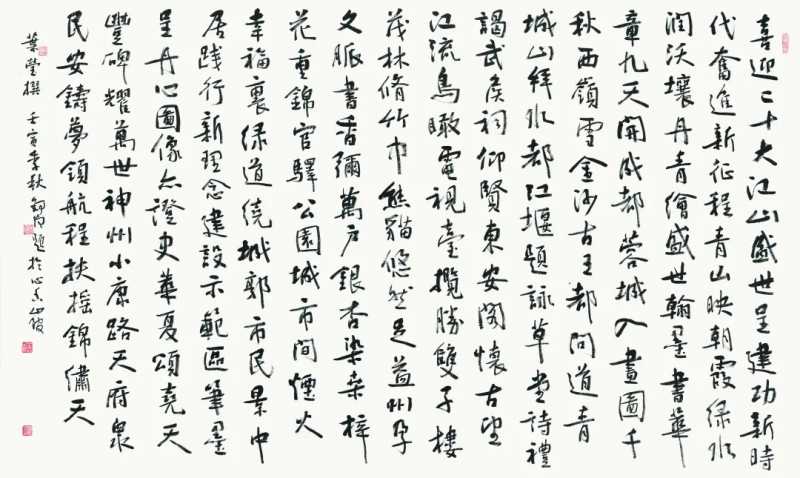 喜迎二十大江山盛世呈建功新時
代奮進新征程青山映朝霞綠水
潤沃壤丹青繪盛世翰墨書華
章九天開成都蓉城入畫圖千
秋西嶺雪金沙古王都問道青
城山拜水都江堰題詠草堂詩禮
謁武侯祠仰賢東安閣懷古望
江流鳥瞰電視臺攬勝雙子樓
茂林脩竹中熊貓悠然見益州孕
文脈書香彌萬戶銀杏染桑梓
花重錦官驛公園城市間煙火
幸福裏綠道繞城郭市民景中
居踐行新理念建設示範區筆墨
呈丹心圖像亦證史華夏頌堯天
豐碑耀萬世神州小康路天府泉
民安鑄夢領航程扶搖錦繡天
葉瑩撰 壬寅季秋 題於心